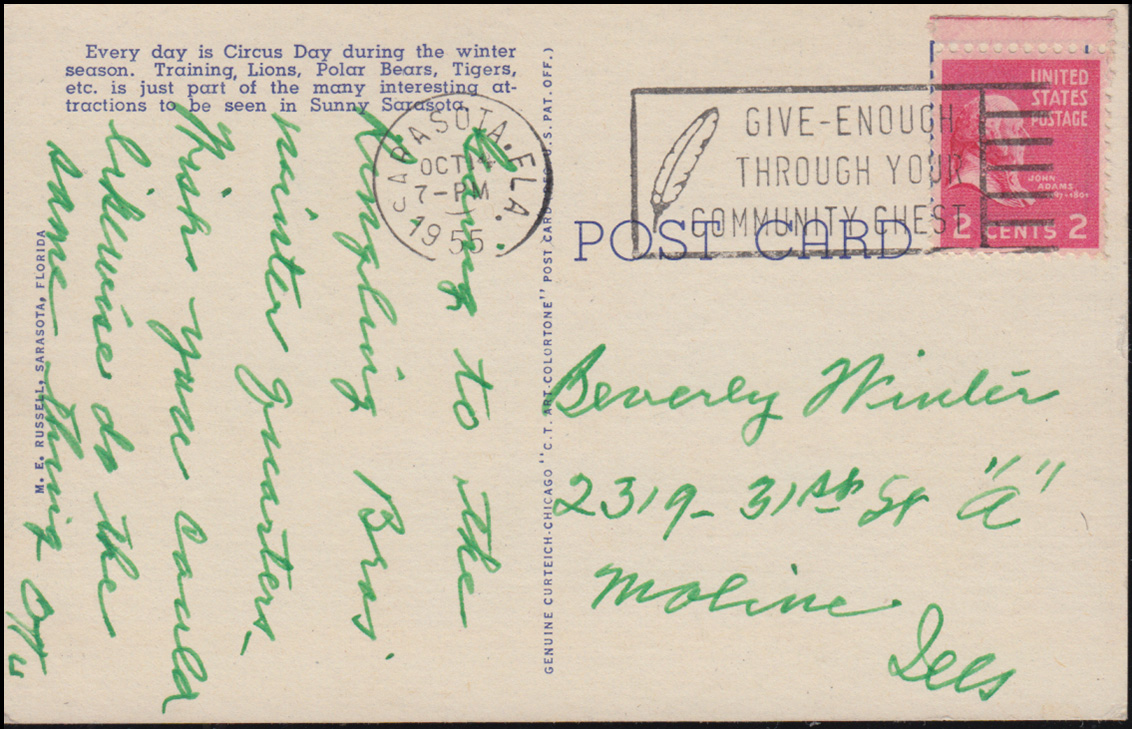 Every day is Circus Day during the winter
season. Training, Lions, Polar Bears, Tigers,
etc. is just part of the many interesting at-
tractions to be seen in Sunny Sarasota.
SARASOTA, FLA.
OCT 14
7-PM
1955
GIVE-ENOUGH
THROUGH YOUR
COMMUNITY CHEST
1
UNITED
STATES
POSTAGE
JOHN
ADAMS
1797-1801
2 CENTS 2
POST CARD
M. E. RUSSELL, SARASOTA, FLORIDA
GENUINE CURTEICH-CHICAGO "C.T. ART-COLORTONE" POST CARD (REG. U.S. PAT. OFF.)
Going to the
Ringling Bros'
winter quarters.
Wish you could
likewise do the
same thing
Beverly Winter
2319- 31st St "A"
Moline
Ills